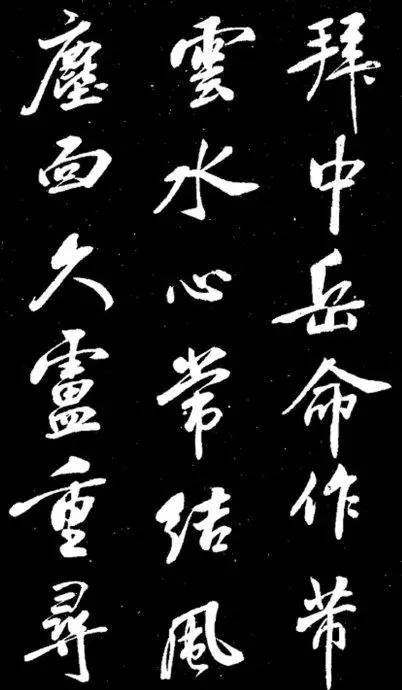 拜中岳命作芾
雲水心常結風
塵面久盧重尋